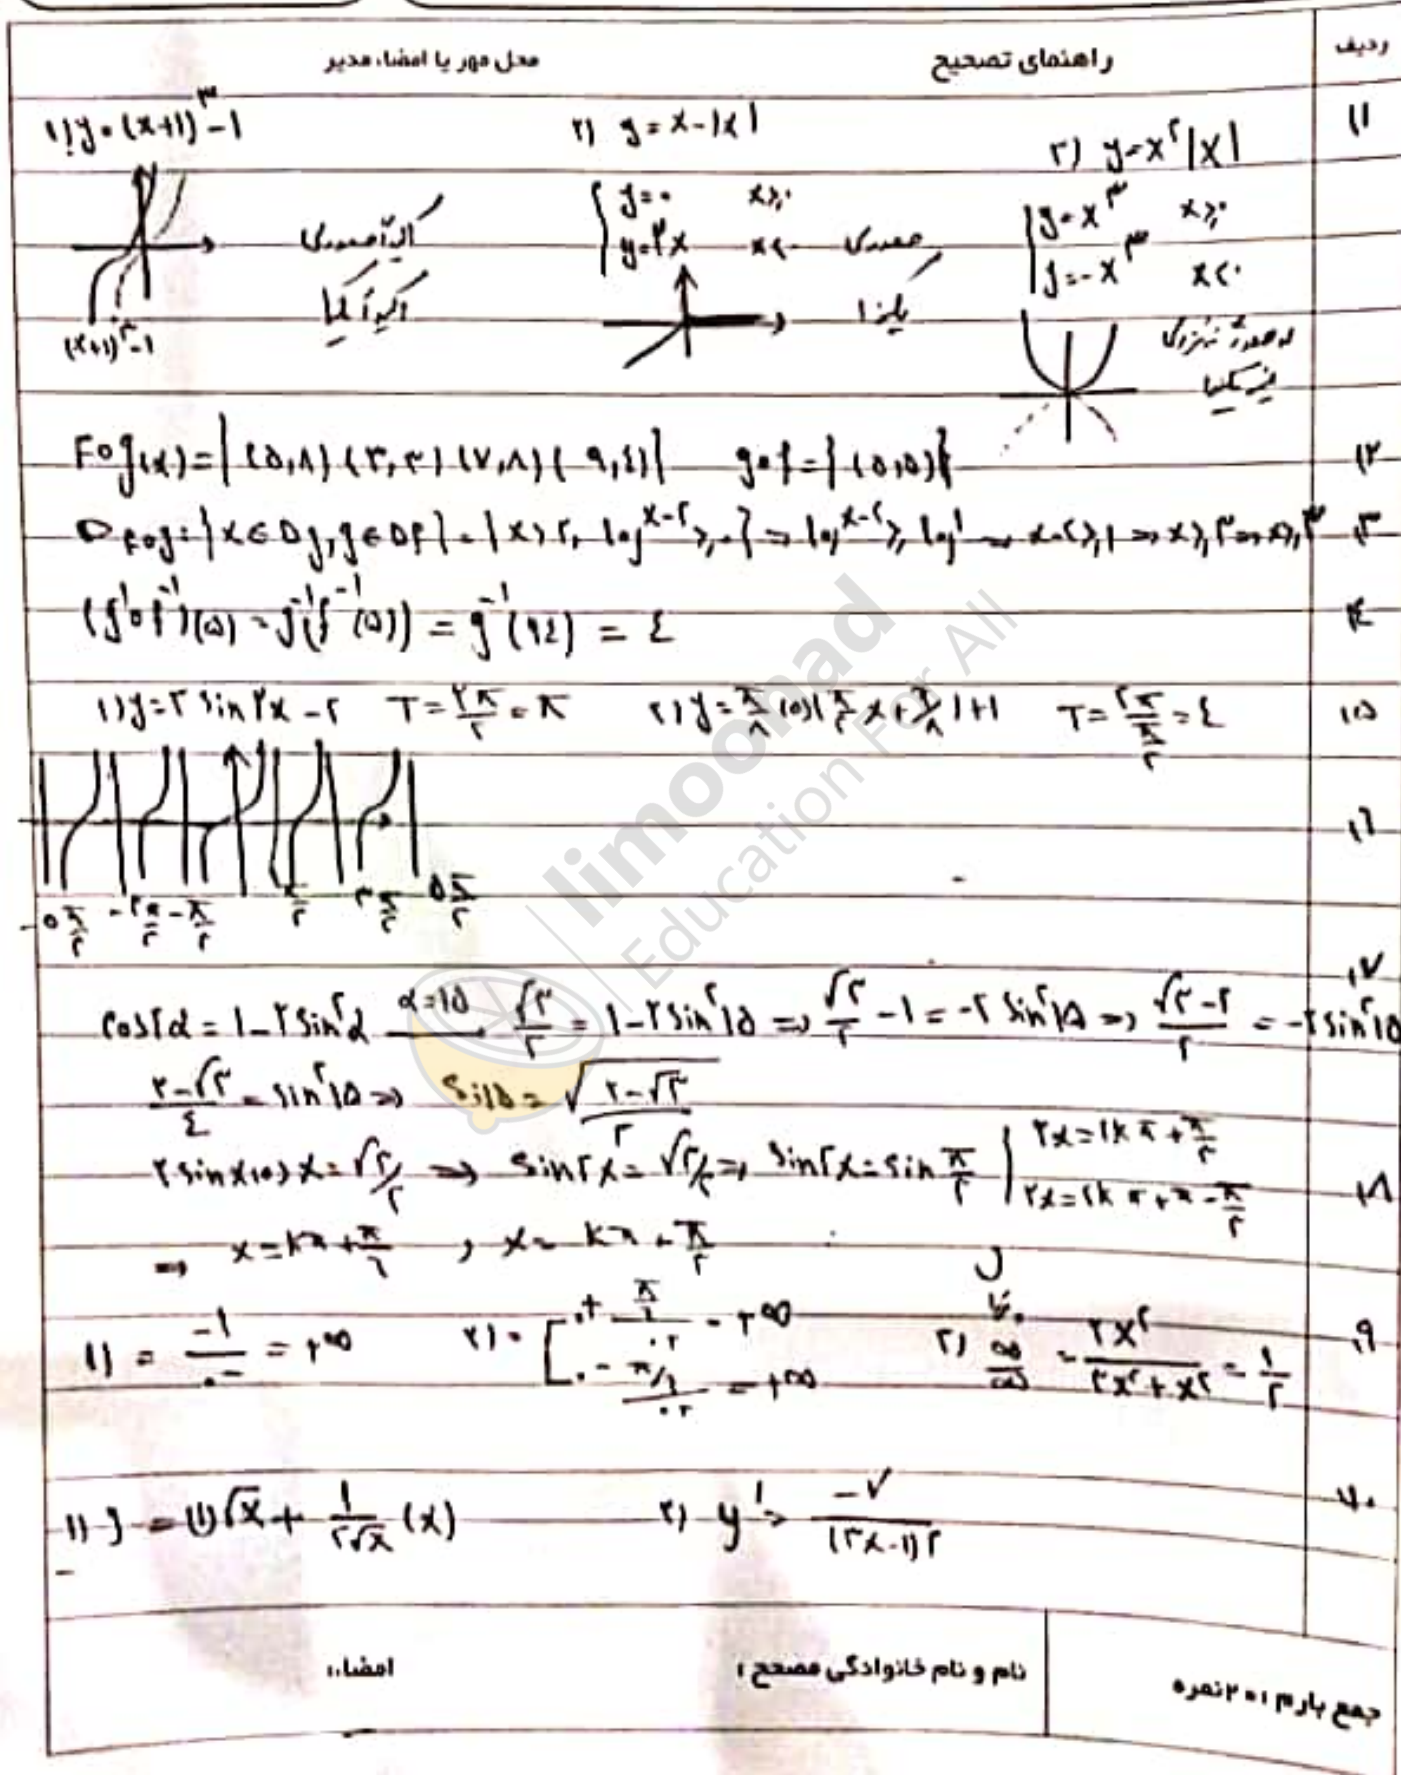 ردیف راهنمای تصحیح محل مهر یا امضاء مدیر
۱۱
۱) y = (x+1)^۳ - 1
۲) y = x - |x|
۳) y = x^۲|x|
{ y = ۰ x ≥ ۰
y = ۲x x < ۰
{ y = x^۳ x ≥ ۰
y = -x^۳ x < ۰
اکیداً صعودی
صعودی
اکیداً یکنوا
(x+1)^۳ - 1
۱۲
Fog(x) = {(۵,۸) (۳,۳) (۷,۸) (۹,٤)} gof = {(۵,۵)}
۱۳
D fog = {x ∈ Dg, g ∈ Df} = {x > ۲, log^{x-۲} ≥ ۰} ⇒ log^{x-۲} ≥ log^۱ ⇒ x-۲ ≥ ۱ ⇒ x ≥ ۳
۱٤
(g^{-1}of^{-1})(۵) = g^{-1}(f^{-1}(۵)) = g^{-1}(۹٤) = ٤
۱۵
۱) y = ۳ sin ۲x - ۲ T = ۲π/۲ = π ۲) y = π/۸ cos(π/۲ x + π/۸) + 1 T = ۲π/(π/۲) = ٤
۱۶
-۵π/۲ -۳π/۲ -π/۲ π/۲ ۳π/۲ ۵π/۲
۱۷
cos۲α = 1 - ۲sin^۲α α=۱۵ √۳/۲ = 1 - ۲sin^۲۱۵ ⇒ √۳/۲ - 1 = -۲ sin^۲۱۵ ⇒ (√۳-۲)/۲ = -۲sin^۲۱۵
(۲-√۳)/٤ = sin^۲۱۵ ⇒ sin۱۵ = √(۲-√۳)/۲
۱۸
۲ sinx cosx = √۳/۲ ⇒ sin۲x = √۳/۲ ⇒ sin۲x = sin π/۳ | ۲x = ۲kπ + π/۳
۲x = ۲kπ + π - π/۳
⇒ x = kπ + π/۶ , x = kπ + π/۳
۱۹
۱) = -1/۰^- = +∞ ۲) = [ ۰+ = +∞
۰- = +∞
۳) ∞/∞ = ۲x^۲/(۳x^۲ + x^۲) = ۱/۲
۲۰
۱) = (1)√x + 1/(۲√x) (x) ۲) y' = -۷/(۳x-1)۲
جمع بارم : ۲۰ نمره نام و نام خانوادگی مصحح : امضاء:
limoonad
Education For All